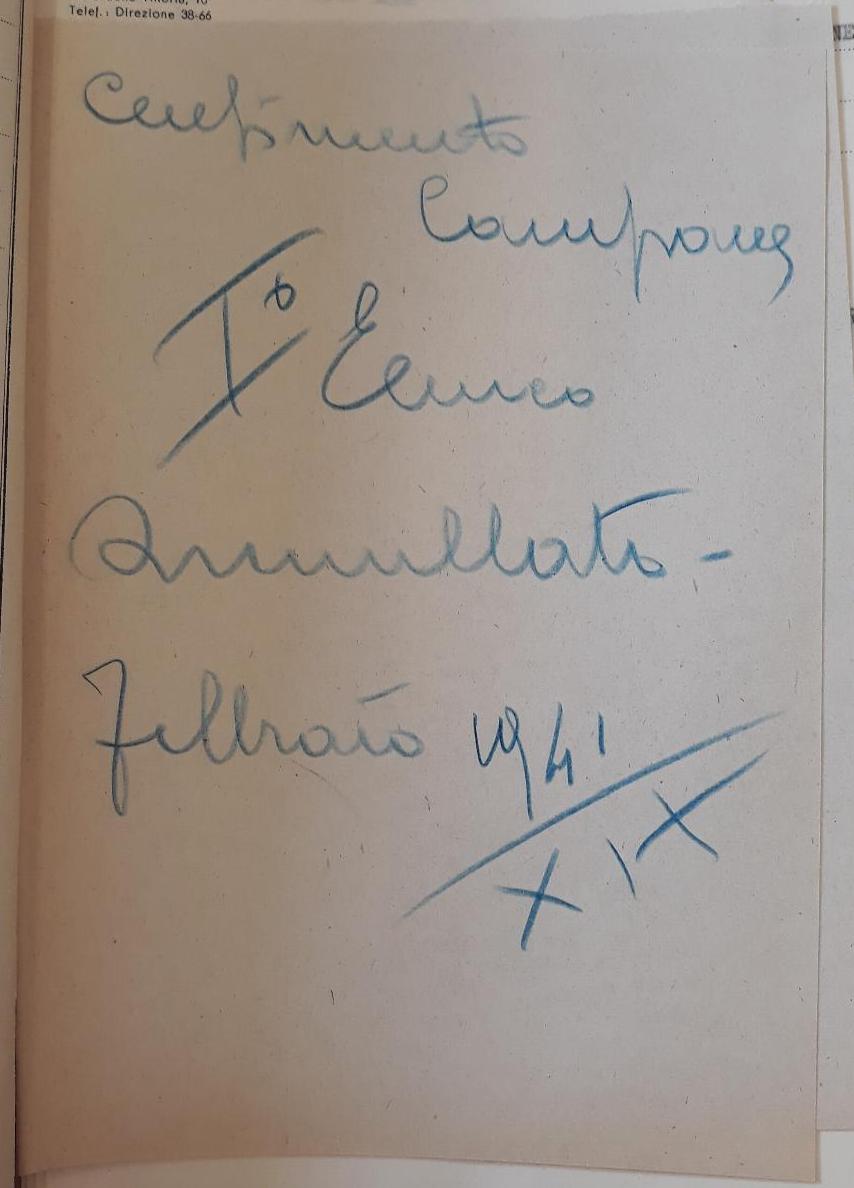 Telef.: Direzione 38-66
NE
Censimento
Campane
I° Elenco
Annullato -
Febbraio 1941
XIX